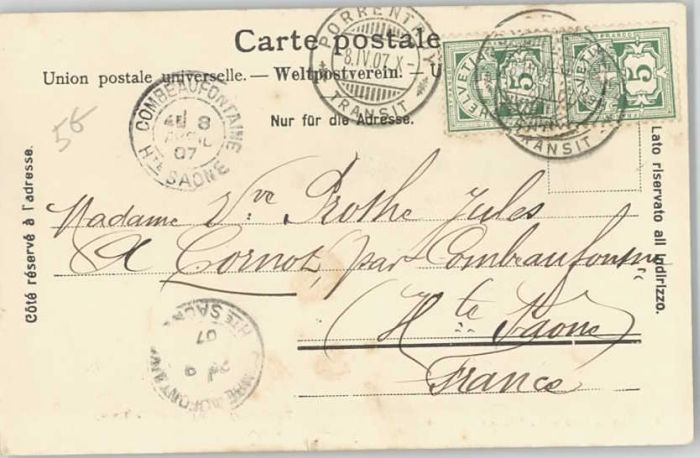 Carte postale
Union postale universelle. — Weltpostverein. — U
Nur für die Adresse.
Côté réservé à l'adresse.
Lato riservato all indirizzo.
PORRENTRUY
8.IV.07.X-
TRANSIT
HELVETIA
5
FRANCO
HELVETIA
5
TRANSIT
COMBEAUFONTAINE
8
AVRIL
07
Hte SAONE
56
Madame Vve Prothe Jules
A Cornot, par Combeaufontaine
Hte Saone
France
Hte SAONE
07
9